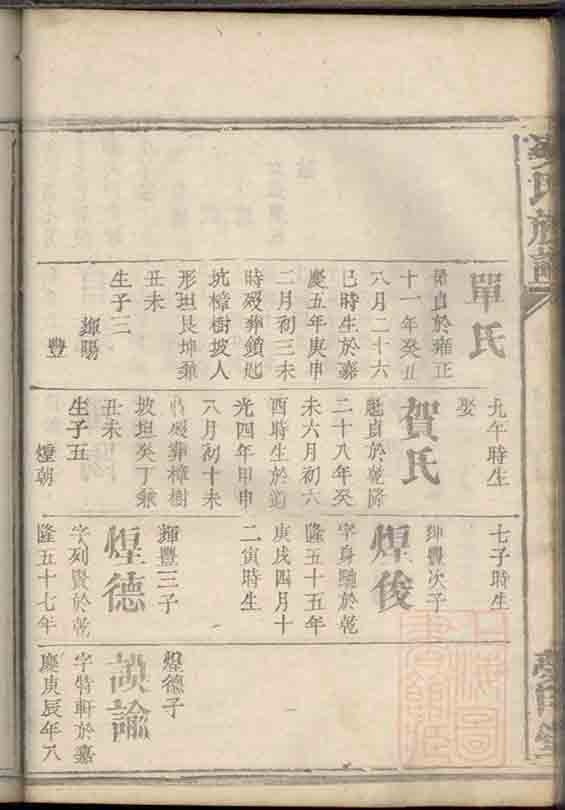 氏族譜
單氏
貞於雍正
十一年癸丑
八月二十六
巳時生於嘉
慶五年庚申
二月初三未
時歿葬鎖匙
坑樟樹坡人
形坦艮坤兼
丑未
生子二
輝陽
豐
九午時生
娶
賀氏
貞於乾隆
二十八年癸
未六月初六
酉時生於道
光四年甲申
八月初十未
時歿葬樟樹
坡坦癸丁兼
丑未
生子五
煌朝
七子時生
輝豐次子
煌俊
字身聰於乾
隆五十五年
庚戌四月十
二寅時生
輝豐三子
煌德
字列賢於乾
隆五十七年
煌德子
諭
字特軒於嘉
慶庚辰年八
上海圖
書館藏